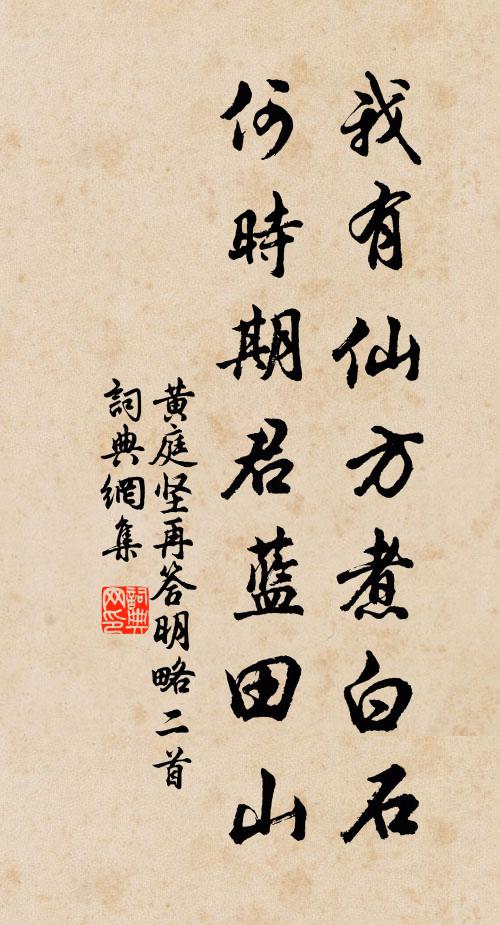 我有仙方煮白石
何時期君藍田山
黄庭坚再答明略二首
詞典網集
詞典
网印